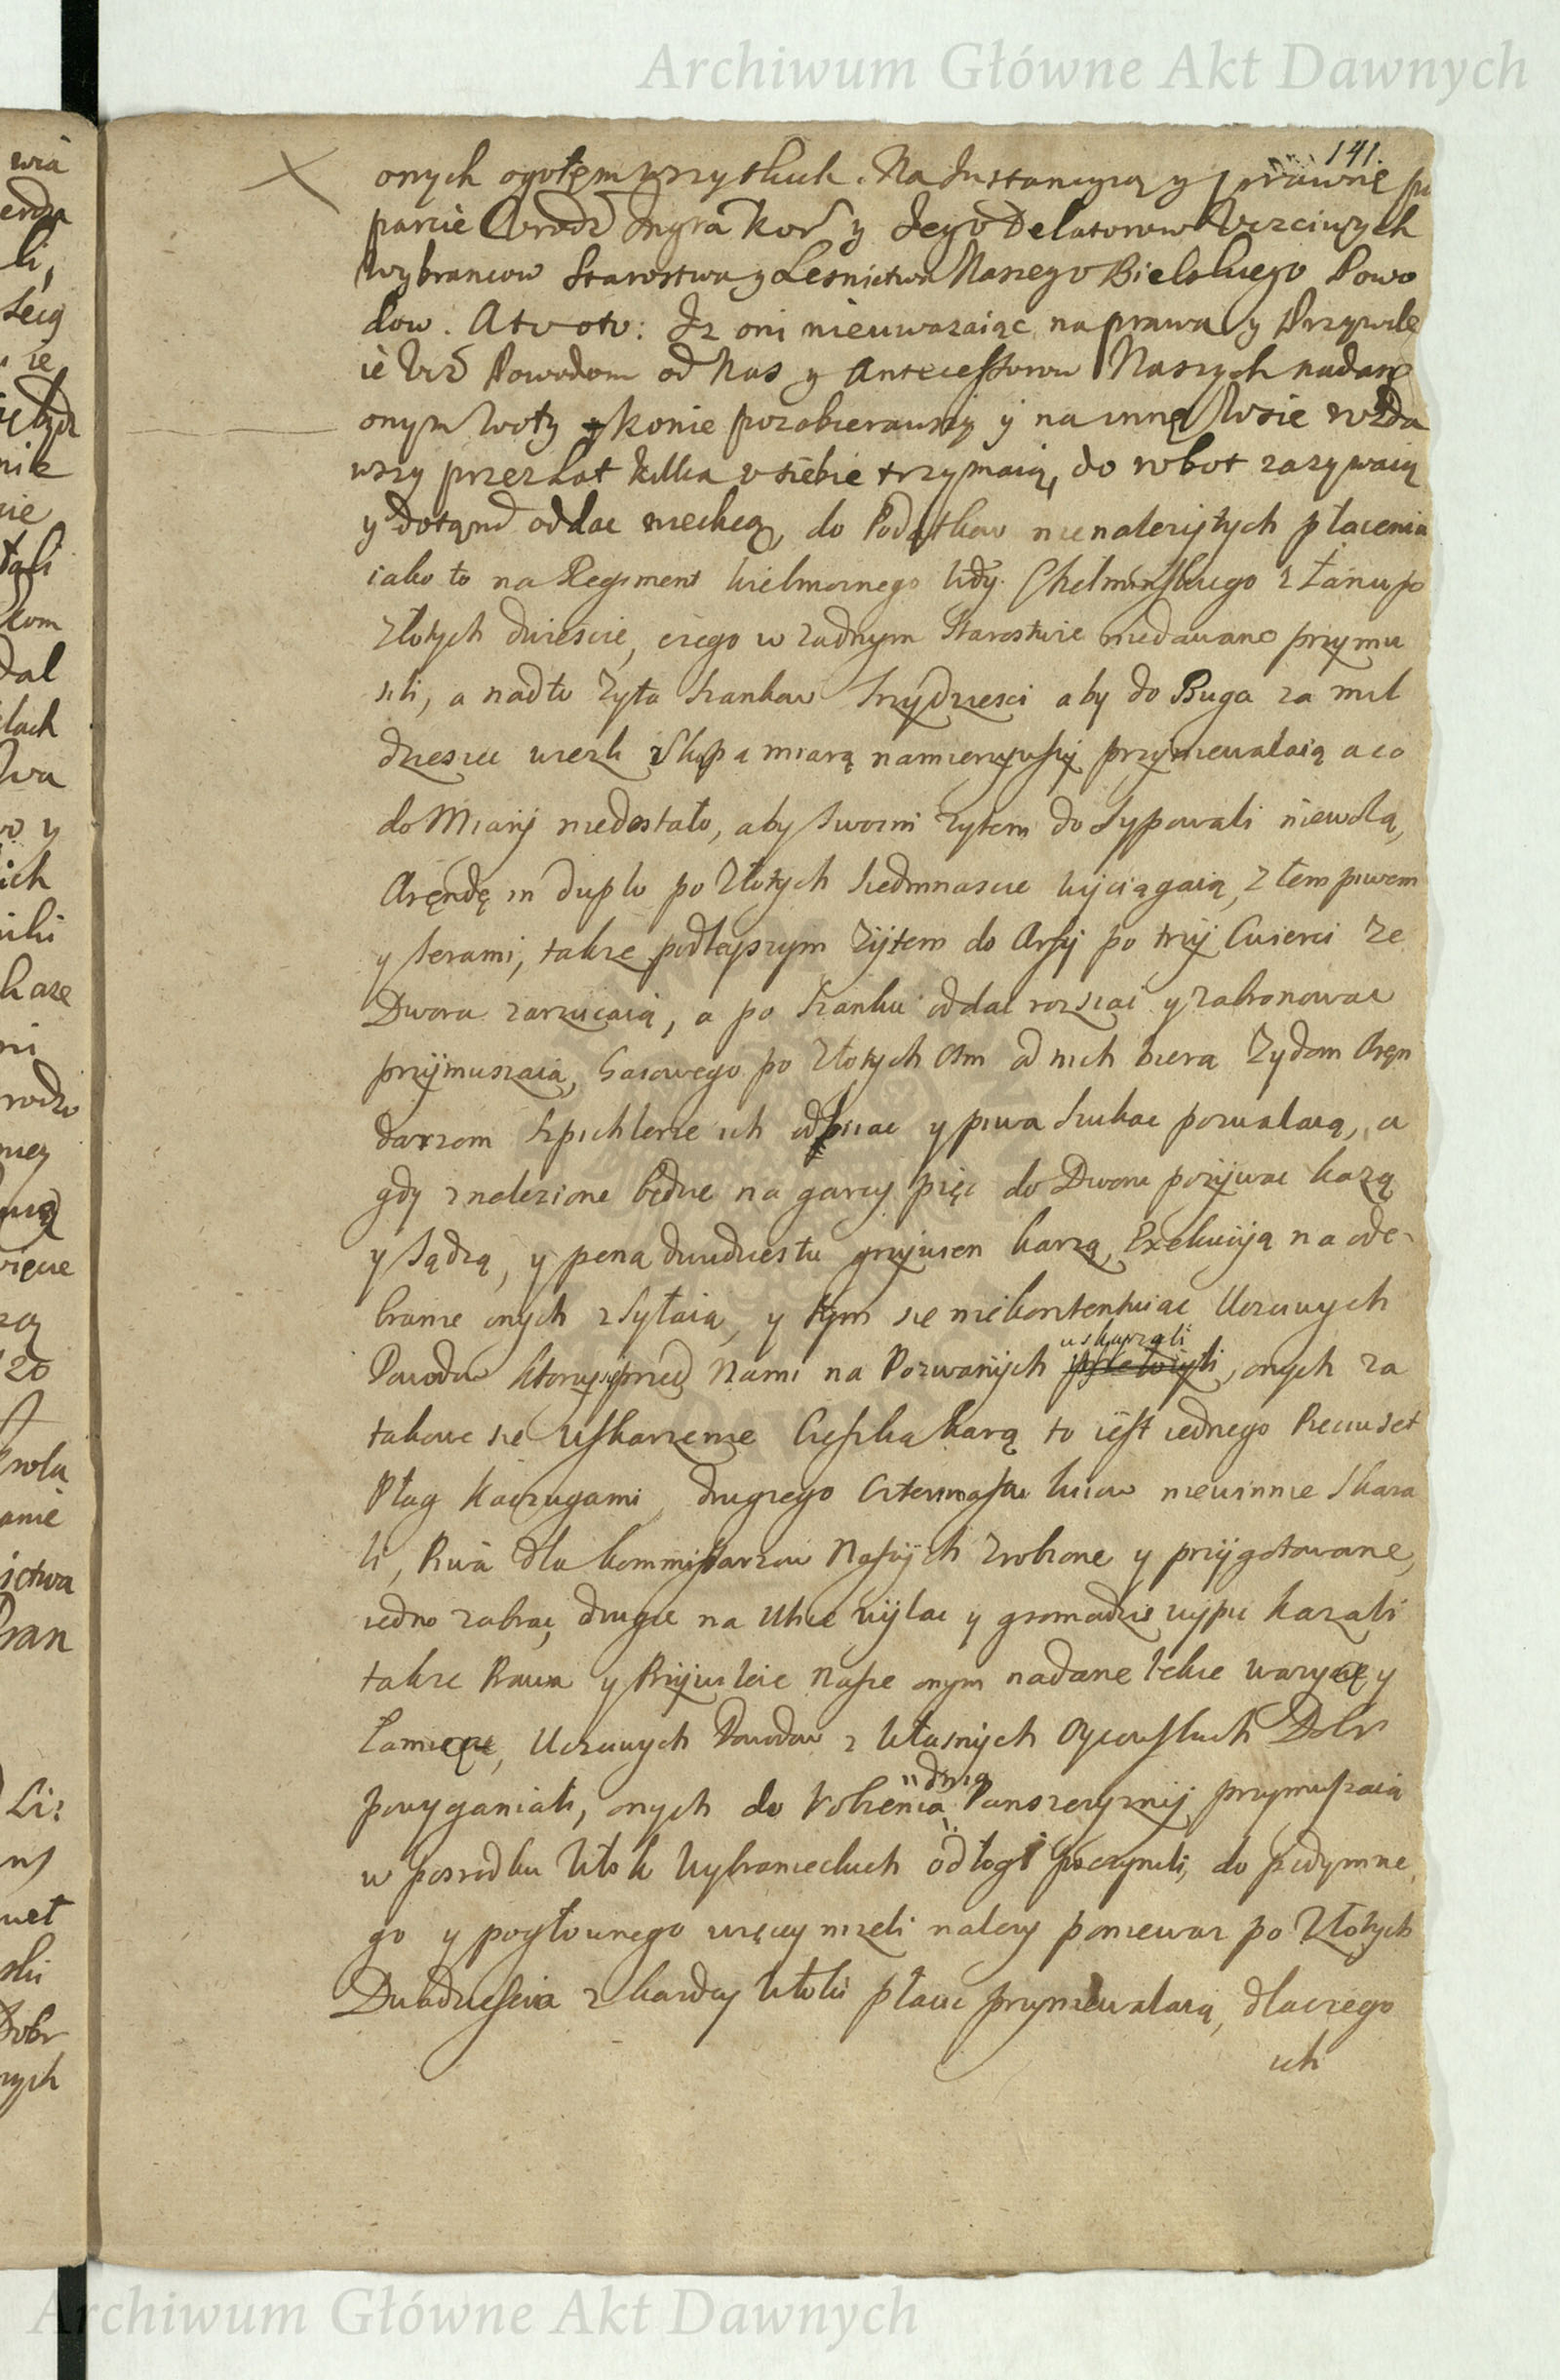 Archiwum Główne Akt Dawnych
141.
onych ogołem wszytkich. Na Instancyią y prawne po
parcie Urodz Jnstygra Kor y Jego Delatorow Uczciwych
Wybrancow Starostwa y Lesnictwa Naszego Bielskiego Powo
dow. A to oto: Iz oni nieuwazaiąc na prawa y Przywile
ie Ucz Powodom od Nas y Antecessorow Naszych nadane
onym woły y konie pozabierawszy y na inne Wsie rozda
wszy przez Lat kilka u siebie trzymaią, do robot zazywaią
y dotąnd oddac niechcą, do Podatkow nienalezytych płacenia
iako to na Regiment Wielmoznego Wdy Chełminskiego z Łanu po
Złotych dwiescie, czego w zadnym Starostwie niedawano przymu
sili, a nadto Zyta Szankow Trzydziesci aby do Buga za mil
dziesiec wiezli Skąpą miarą namierzywszy przyniewalaią a co
do Miary niedostało, aby swoim zytem dosypowali niewolą,
Arędę in duplo po Złotych Siedmnascie wyciągaią, z łem piwem
y serami, takze podleyszym Zytem do Arsy po trzy Cwierci ze
Dwora zarzucaią, a po Szanku oddac rozsiac y zabronowac
przymuszaią, Gaiowego po Złotych Osm od nich biera Zydom Aren
darzom Szpichlerze ich odbiiac y piwa szukac pozwalaią, a
gdy znalezione będzie na garcy pięc do Dworu pozywac kazą
y sądzą, y peną dwudziestu grzywien karzą, Exekucyią na ode-
branie onych zsyłaią, y tym sie niekontentuiąc Uczciwych
Powodow ktorzy się przed Nami na Pozwanych uskarzali, onych za
takowe sie Uskarzenie Cieszką karą to iest iednego Pieciuset
Plag Kaczugami, drugiego Czternastu kiiow niewinnie skara
li, Piwa dla Kommissarzow Naszych zrobione y przygotowane,
iedno zabrac, drugie na Ulice wylac y gromadzie wypic kazali
takze Prawa y Przywileie Nasze onym nadane lekce wazycie y
Łamiecie, Uczciwych Powodow z Własnych Oycowskich Dobr
powyganiali, onych do robienia dnia Panszczyzny przymuszaią
w posrodku Włok Wybranieckich odłogi poczynili, do podymne
go y pogłownego więcey nizeli nalezy poniewaz po Złotych
Dwadziescia z kazdey Włoki płacic przyniewalaią, dlaczego
ich
Archiwum Główne Akt Dawnych